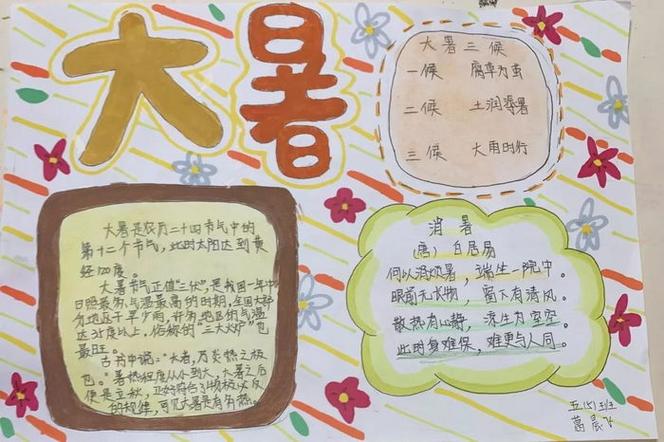 大暑
大暑三候
一候 腐草为萤
二候 土润溽暑
三候 大雨时行
大暑是农历二十四节气中的
第十二个节气，此时太阳达到黄
经120度。
大暑节气正值"三伏"，是我国一年中
日照最多、气温最高的时期，全国大部
分地区干旱少雨，许多地区的气温
达35度以上，俗称的"三大火炉"也
最旺。
古书中说："大者，乃炎热之极
也。"暑热程度从小到大，大暑之后
便是立秋，正好符合了物极必反
的规律，可见大暑是有多热。
消暑
(唐) 白居易
何以消烦暑，端坐一院中。
眼前无长物，窗下有清风。
散热有心静，凉生为室空。
此时身难保，难更与人同。
五(5)班
葛晨飞